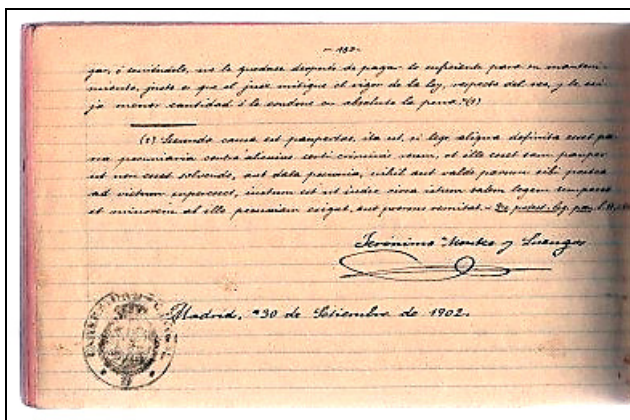 - 132 -
gar, ó teniéndolo, no le quedase después de pagar lo suficiente para su manteni-
miento, justo es que el juez mitigue el rigor de la ley, respecto del reo, y le exi-
ja menor cantidad ó le condone en absoluto la pena." (1)
(1) Secunda causa est paupertas, ita ut, si lege aliqua definita esset pœ-
na pecuniaria contra alicuius certi criminis reum, et ille esset tam pauper
ut non esset solvendo, aut data pecunia, nihil aut valde parum sibi postea
ad victum superesset, iustum est ut iudex circa istum talem legem temperet
et minorem ab illo pecuniam exigat, aut pœnas remitat. - De potest. leg. pœn.
Jerónimo Montes y Luengos
Madrid, 30 de Setiembre de 1902.